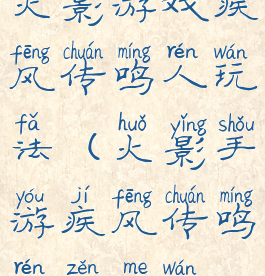 火影游戏疾
fēng chuán míng rén wán
风传鸣人玩
fǎ huǒ yǐng shǒu
法（火影手
yóu jí fēng chuán míng
游疾风传鸣
rén zěn me wán